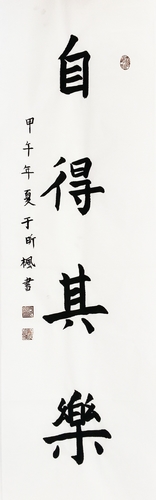 自得其樂
甲午年夏于昕楓書